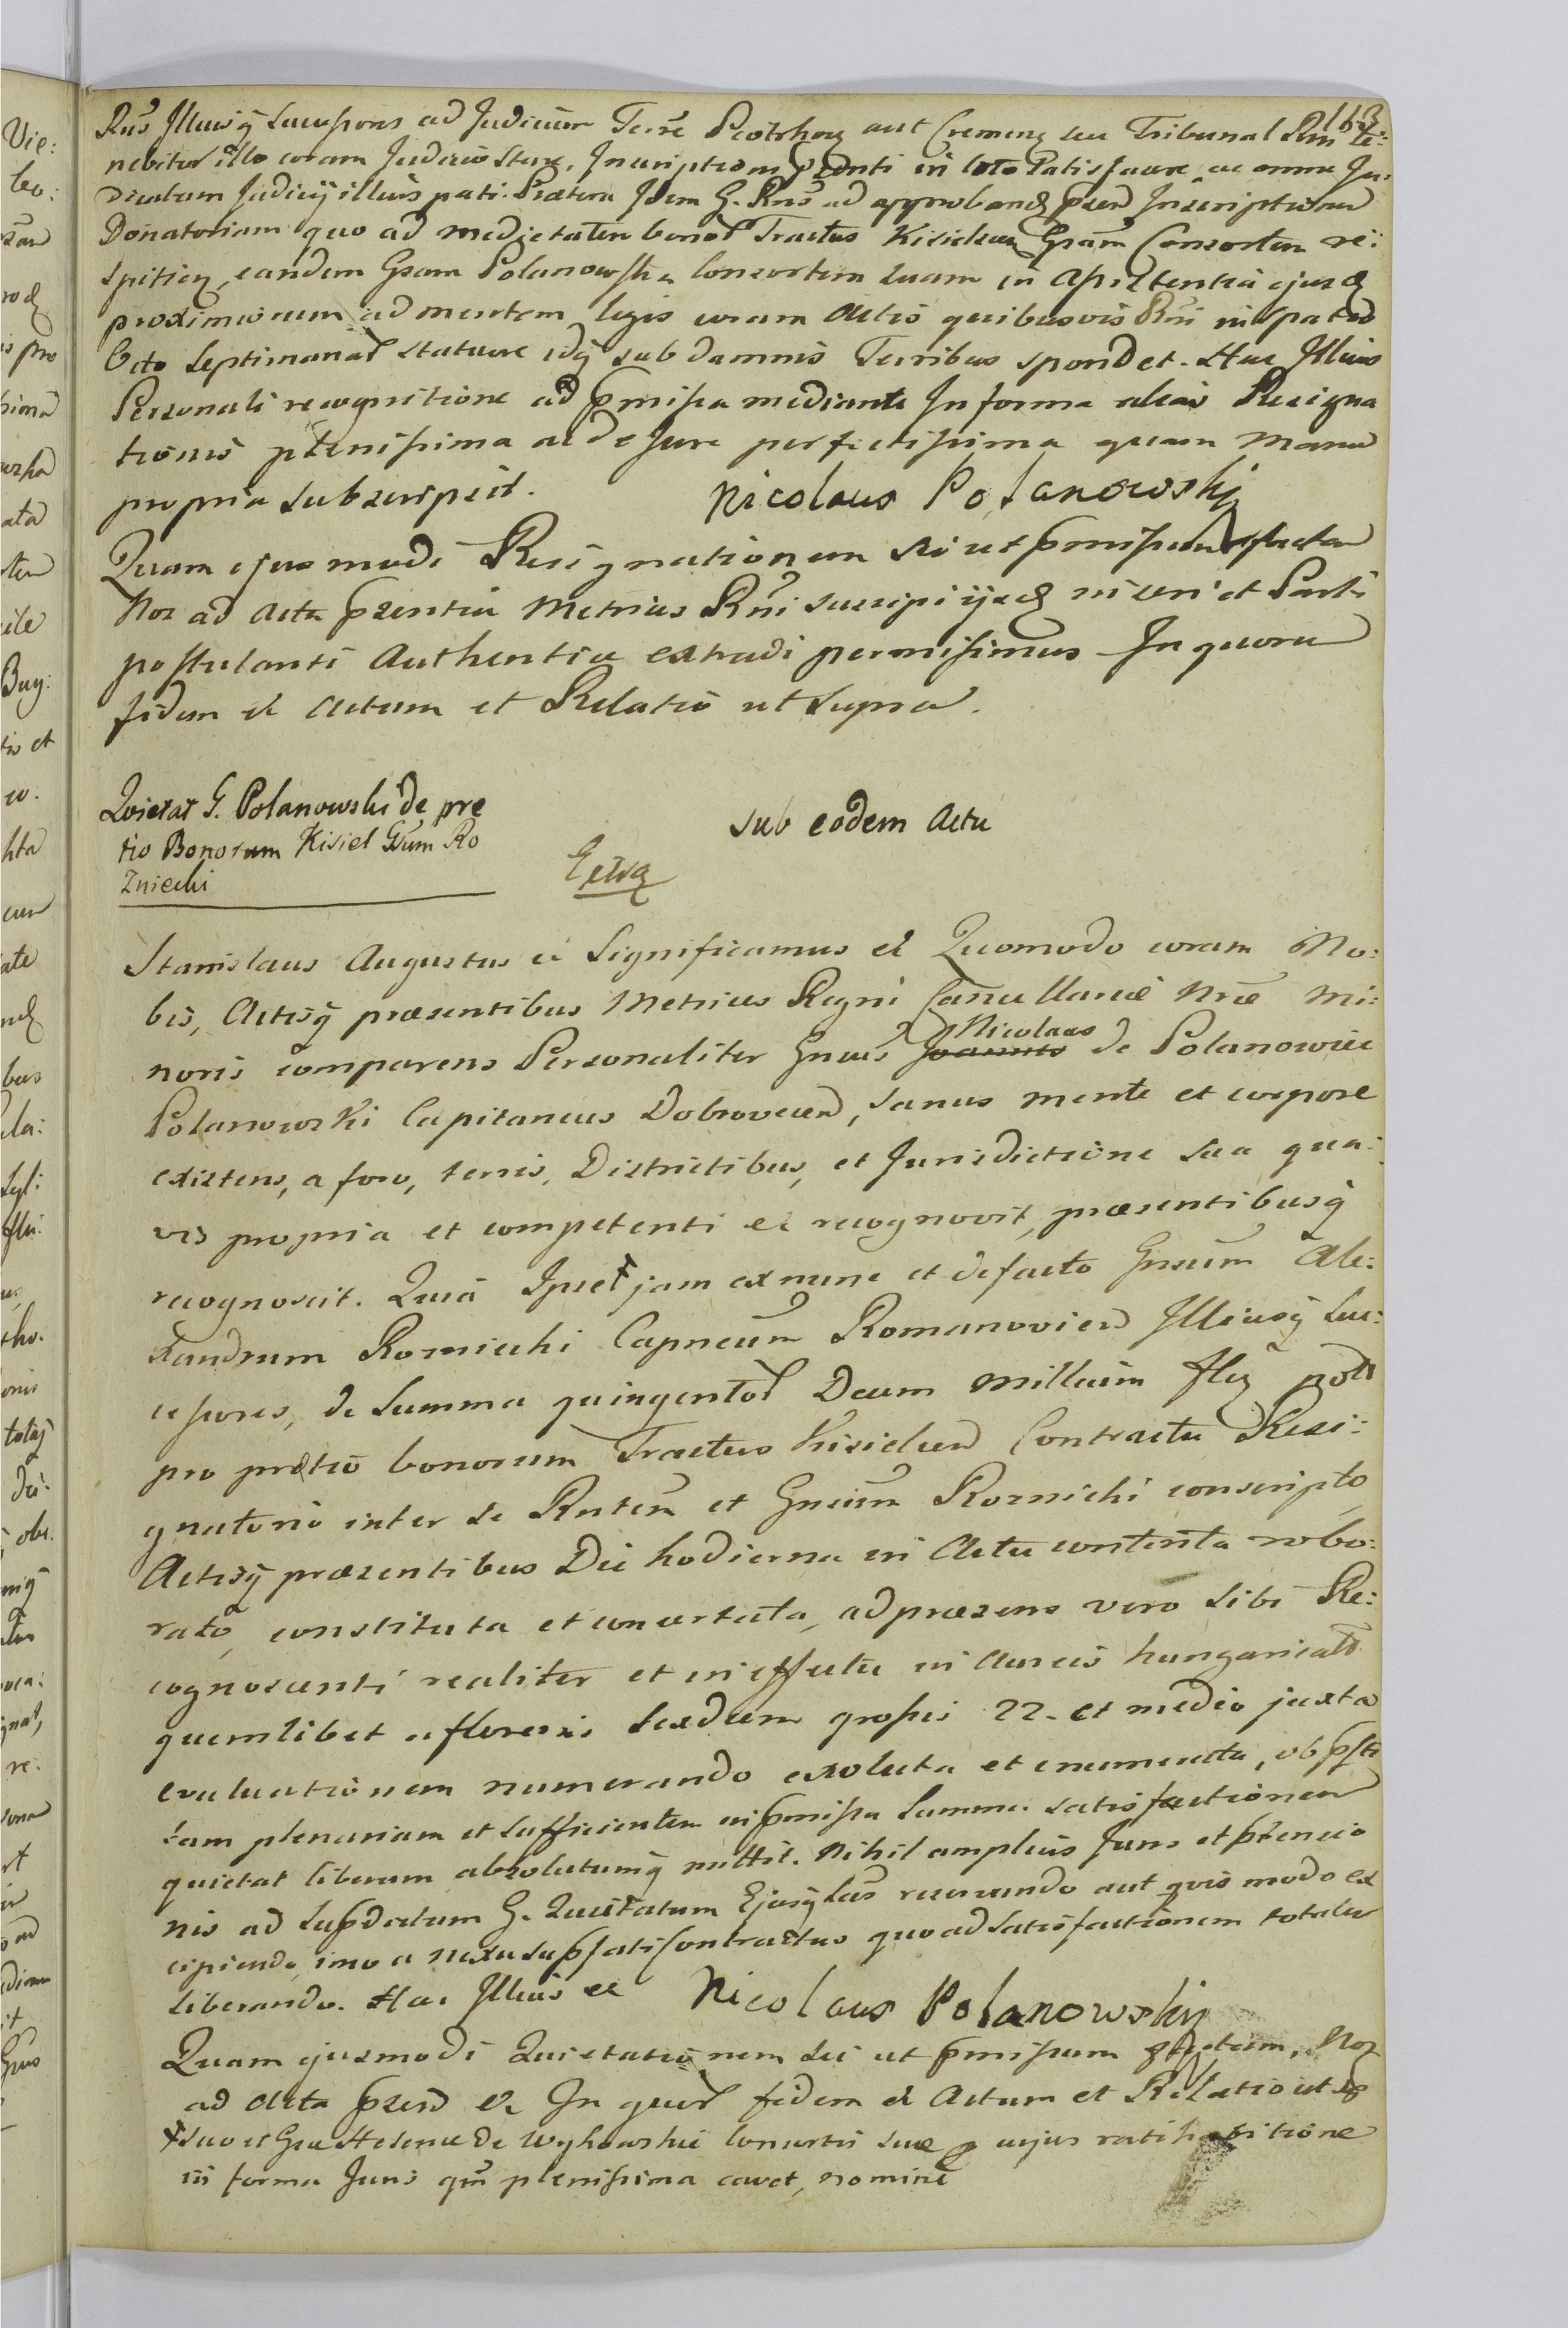 163
Rns̃ Illiusq̃ Successores ad Judicium Terrẽ Piotrkov aut Cremeng seu Tribunal Rñi te:
nebitur illo coram Judicio Stare, Inscriptioni pñti in toto Satisfacere ac omne Ju:
dicatum Judicij illius pati. Præterea Idem G. Rns̃ ad approband pñ Inscriptionem
Donatoriam quo ad medietatem bonor Tractus Kisielien Gsam Consortem re:
spicien, eandem Gsam Polanowska Consortem suam in assistentia ejusd
proximiorum ad mentem legis coram Actis quibusvis Rñi in spatio
Octo Septimanar statuere idq̃ sub damnis Terribus spondet. Hac Illius
Personali recognitione ad pmissa mediante In forma alias Resigna
tionis plenissima ac de Jure perfectissima quam Manu
propria subscripsit. Nicolaus Polanowski
Quam ejusmodi Resignationem sic ut pmissum factam
Nos ad Acta pñtia Metrices Rñi suscipi ijsd inseri et Parti
postulanti Authentice extradi permisimus In quoru
fidem et Actum et Relatio ut Supra.
Qvietat G. Polanowski de pre
tio Bonorum Kisiel Gsum Ro
Zniecki
sub eodem Actu
Stanislaus Augustus et Significamus et Quomodo coram No:
bis, Actisq̃ præsentibus Metrices Regni Cancellariæ Nrẽ Mi:
noris comparens Personaliter Gnus̃ Joannes Nicolaus de Polanowice
Polanowski Capitaneus Dobrovecen, sanus mente et corpore
existens, a foro, terris, Districtibus, et Jurisdictione sua qua:
vis propria et competenti et recognovit, præsentibusq̃
recognoscit. Quia Ipse ✝ jam ex nunc et de facto Gnsum Ale:
xandrum Rozniecki Capneum Romanovien Illiusq̃ Suc:
cessores, de Summa quingentor Decem millium flor pol
pro pretio bonorum Tractus Kisielien Contractu Resi:
gnatorio inter se Rnten et Gnsum Roznicki conscripto
Actisq̃ præsentibus Die hodierna in Actu contenta robo:
rato, constituta et concertata, ad præsens vero Sibi Re:
cognoscenti realiter et in effectu in Aureis hungaricali
quemlibet a florenis Sexdecim grossis 22. et medio juxta
evaluationem numerando exoluta et enumerata, ob psti
tam plenariam et Sufficientem in pmissa Summa satisfactionem
quietat liberum absolutumq̃ mittit. Nihil amplius Juris et ptensio
nis ad Supdictum G. Quietatum Ejusq̃ Sucs̃ reservando aut quovis modo ex
cipiendo, imo a nexu supsati Contractus quo ad Satisfactionem totaliter
liberando. Hac Illius et Nicolaus Polanowski
Quam ejusmodi Quietationem sic ut pmissum factam, Nos
ad Acta pñ et In quor fidem et Actum et Relatio ut sp
✝ suo et Gsae Helenae de Wyhowskie Consortis suæ p cujus ratihabitione
in forma Juris qm̃ plenissima cavet, nomine